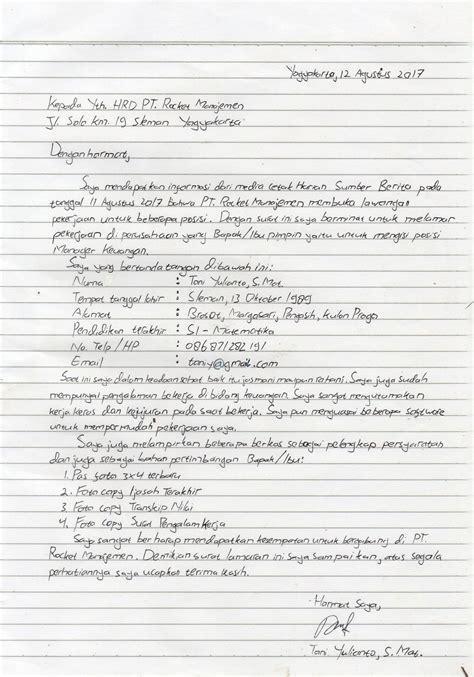 Yogyakarta, 12 Agustus 2017
Kepada Yth. HRD PT. Rocket Manajemen
Jl. Solo km. 19 Sleman Yogyakarta
Dengan hormat,
Saya mendapatkan informasi dari media cetak Harian Sumber Berita pada
tanggal 11 Agustus 2017 bahwa PT. Rocket Manajemen membuka lawangan
pekerjaan untuk beberapa posisi. Dengan surat ini saya berminat untuk melamar
pekerjaan di perusahaan yang Bapak/Ibu pimpin yaitu untuk mengisi posisi
Manager Keuangan.
Saya yang bertanda tangan dibawah ini:
Nama : Toni Yulianto, S.Mat.
Tempat tanggal lahir : Sleman, 13 Oktober 1989
Alamat : Brosot, Margosari, Pengasih, Kulon Progo
Pendidikan terakhir : S1 - Matematika
No. Telp/HP : 08687128219
Email : toniy@gmail.com
Saat ini saya dalam keadaan sehat baik itu jasmani maupun rohani. Saya juga sudah
mempunyai pengalaman bekerja di bidang keuangan. Saya sangat mengutamakan
kerja keras dan kejujuran pada saat bekerja. Saya pun menguasai beberapa software
untuk mempermudah pekerjaan saya.
Saya juga melampirkan beberapa berkas sebagai pelengkap persyaratan
dan juga sebagai bahan pertimbangan Bapak/Ibu:
1. Pas foto 3x4 terbaru
2. Foto copy Ijasah Terakhir
3. Foto copy Transkip Nilai
4. Foto copy Surat Pengalam Kerja
Saya sangat berharap mendapatkan kesempatan untuk bergabung di PT.
Rocket Manajemen. Demikian surat lamaran ini saya sampaikan, atas segala
perhatiannya saya ucapkan terima kasih.
Hormat Saya,
Toni Yulianto, S.Mat.